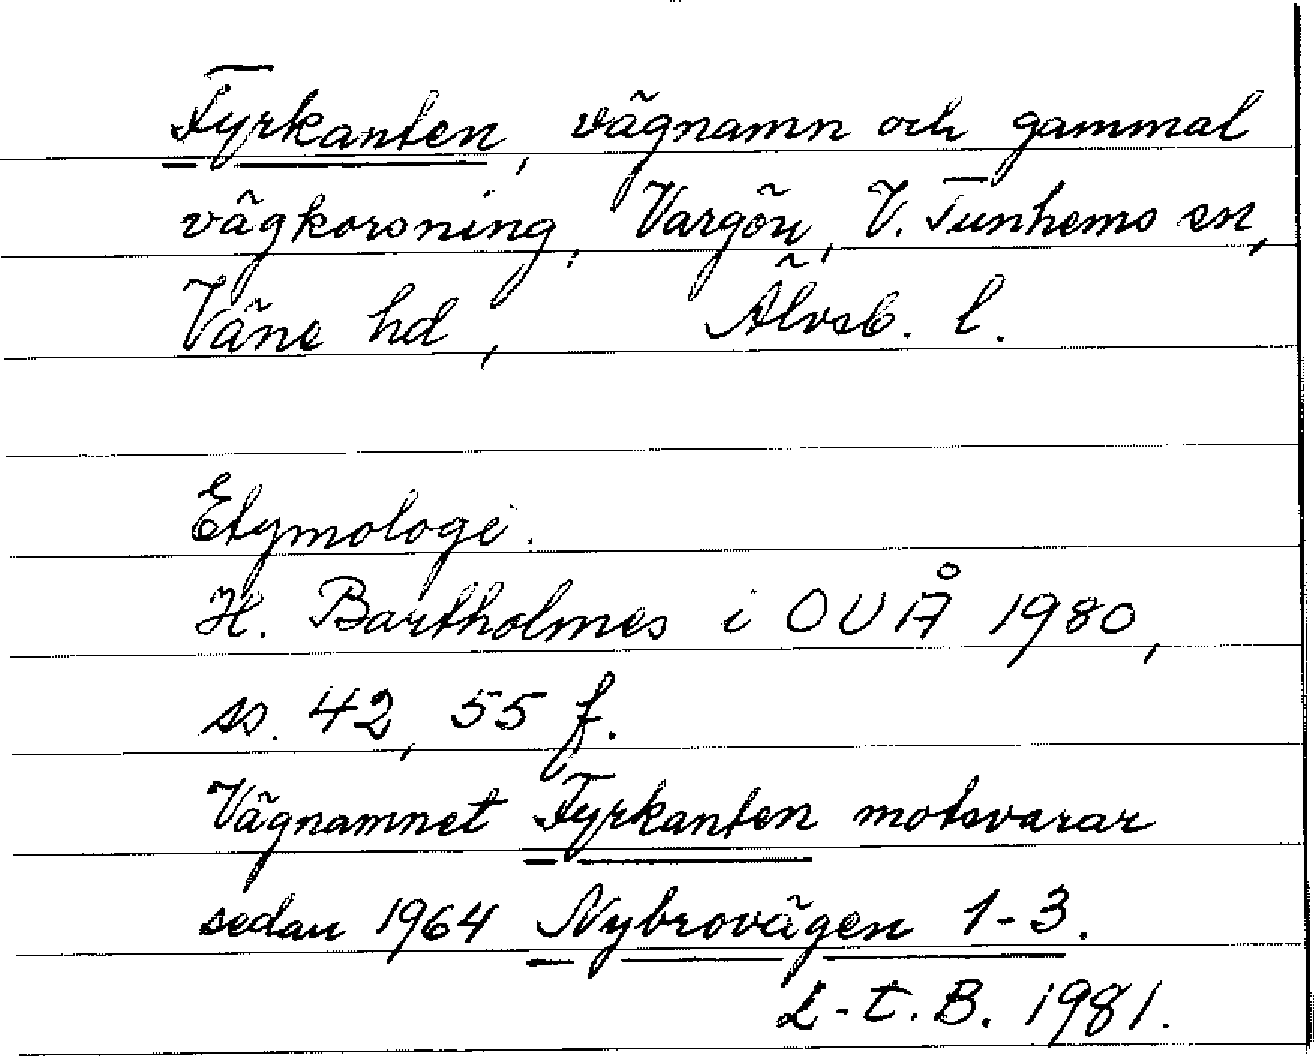 Fyrkanten, vägnamn och gammal
vägkorsning, Vargön, V. Tunhems sn,
Väne hd, Älvsb. l.
Etymologi.
H. Bartholmes i OUÅ 1980,
ss. 42, 55 f.
Vägnamnet Fyrkanten motsvarar
sedan 1964 Nybrovägen 1-3.
L-t. B. 1981.